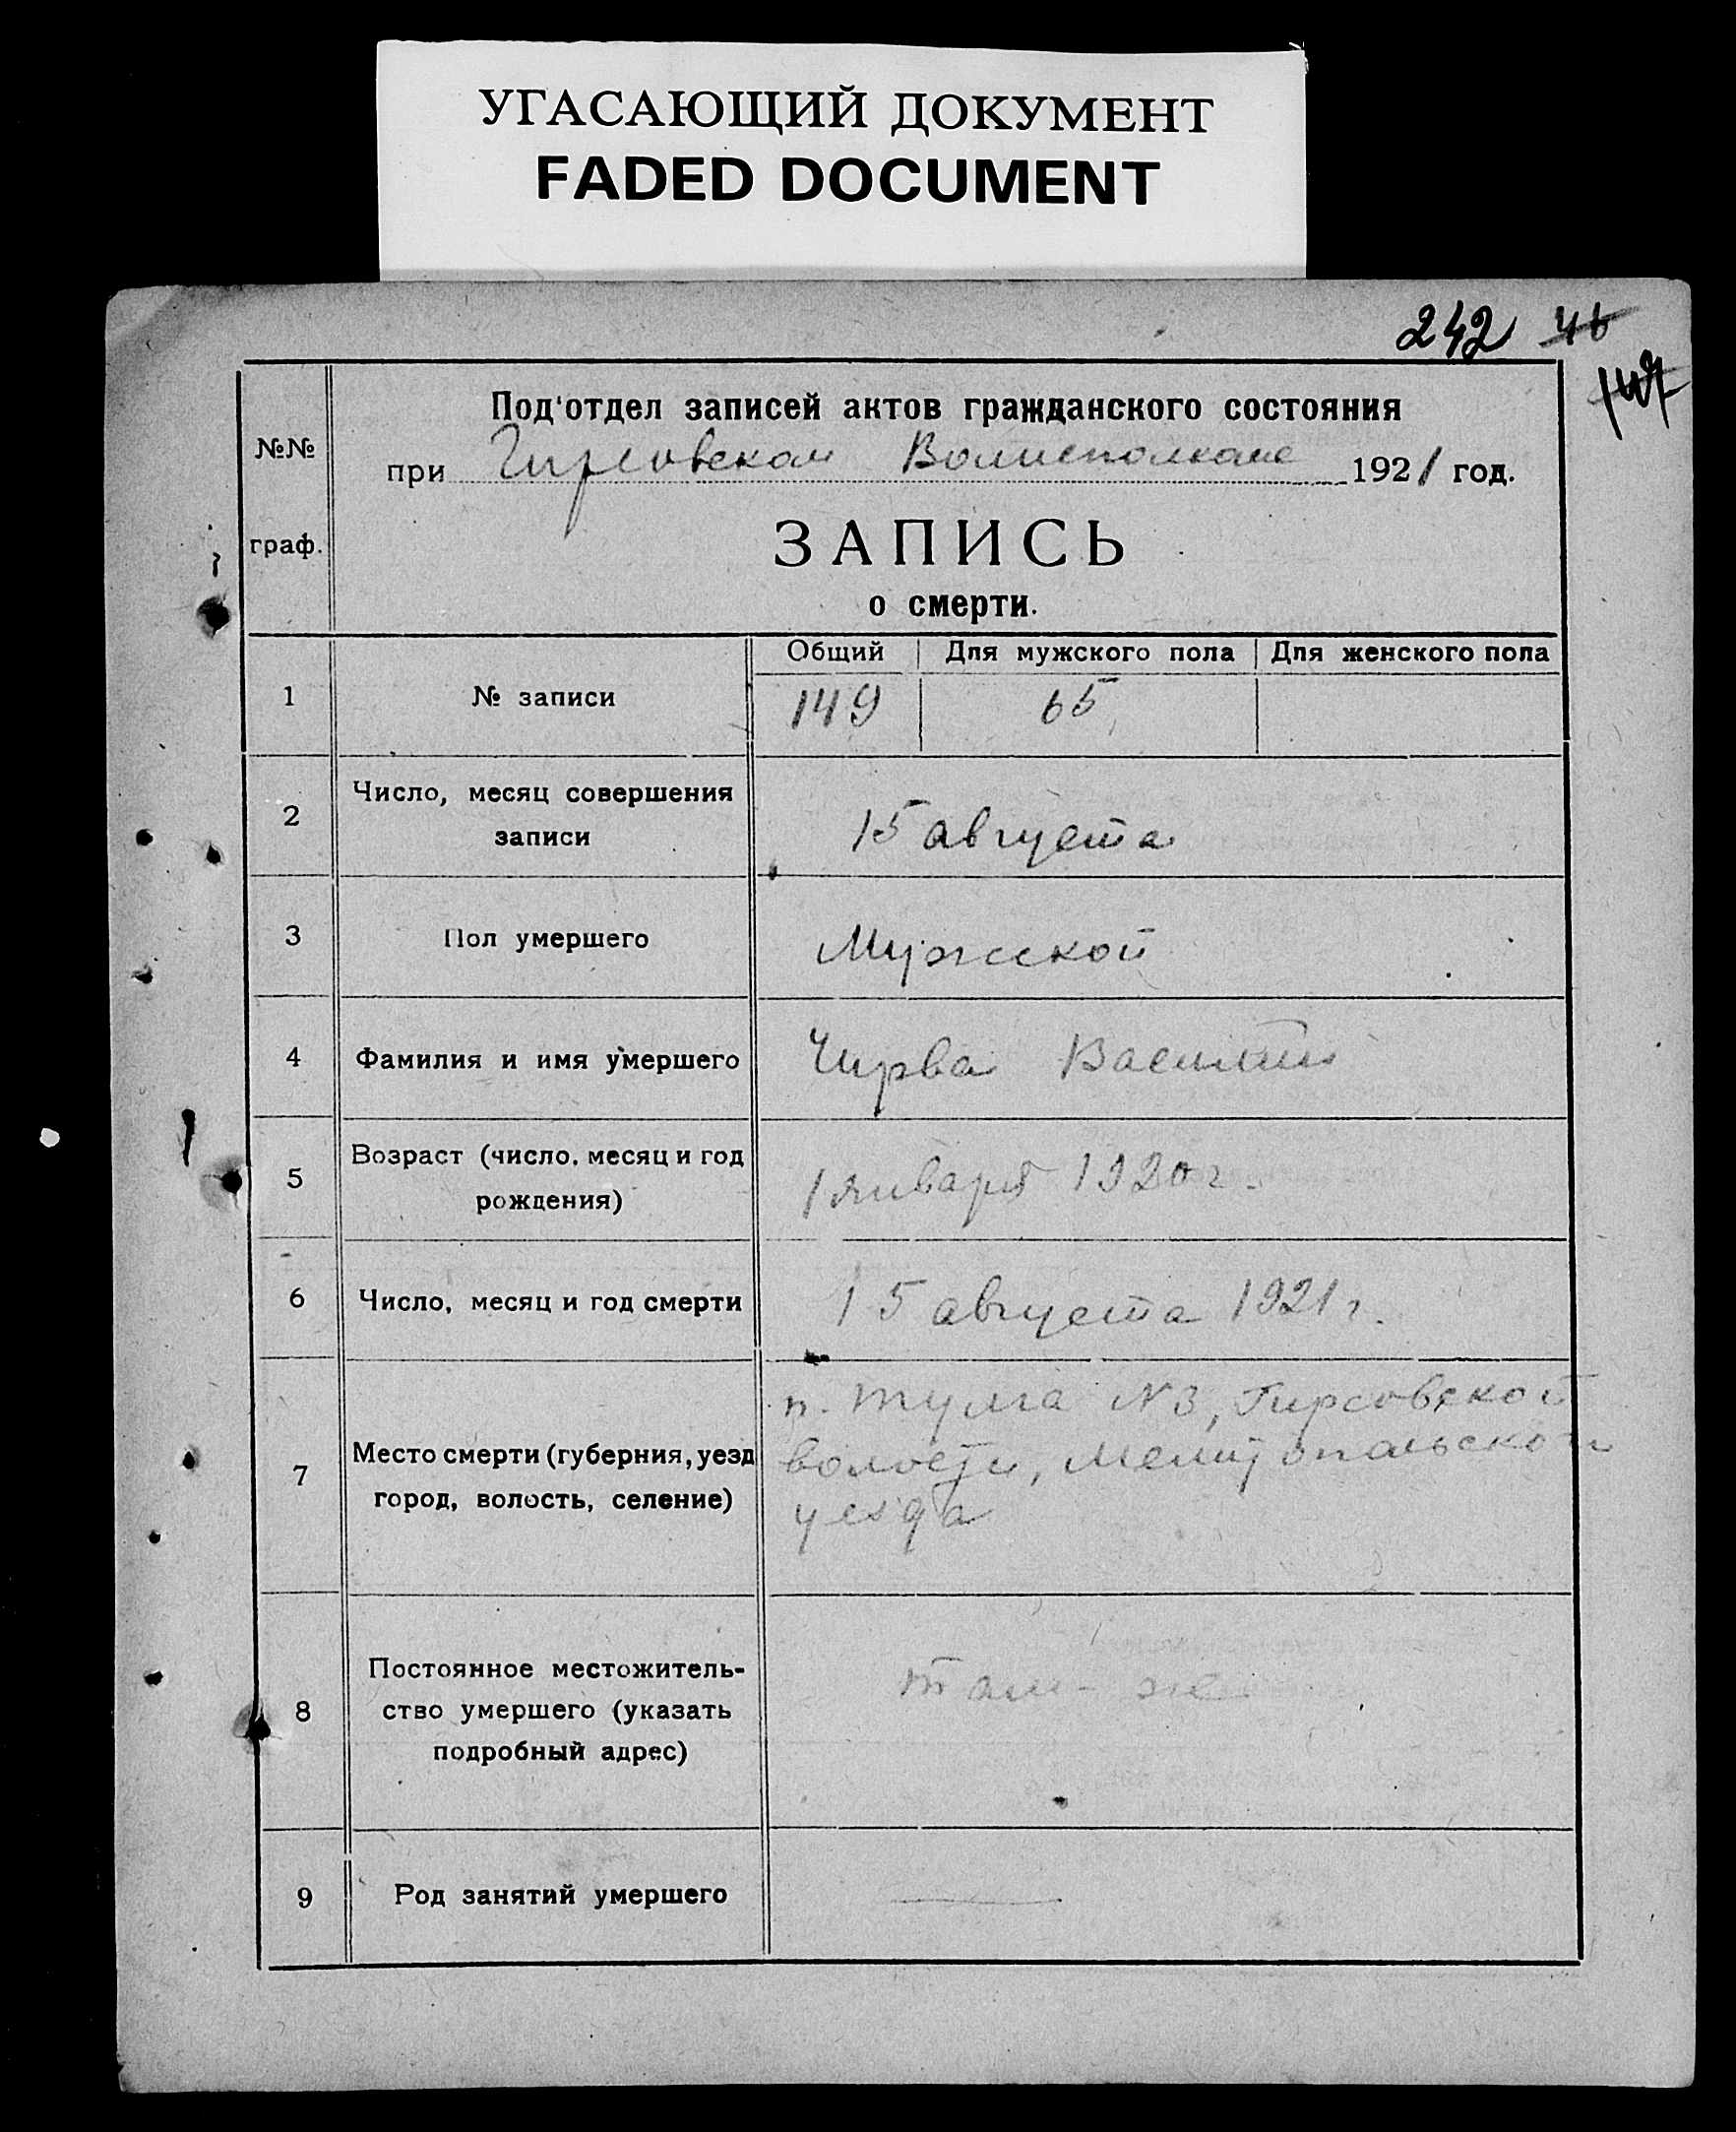 УГАСАЮЩИЙ ДОКУМЕНТ
FADED DOCUMENT
242 46
147
№№ граф.
Под'отдел записей актов гражданского состояния
при Гирсовском Волисполкоме 1921 год.
ЗАПИСЬ
о смерти.
Общий Для мужского пола Для женского пола
1 № записи 149 65
2 Число, месяц совершения
записи
15 августа
3 Пол умершего Мужской
4 Фамилия и имя умершего Чирва Василий
5 Возраст (число, месяц и год
рождения)
1 января 1920 г.
6 Число, месяц и год смерти 15 августа 1921 г.
7 Место смерти (губерния, уезд
город, волость, селение)
п. Тулга №3, Гирсовской
волости, Мелитопольской
уезда
8 Постоянное местожитель-
ство умершего (указать
подробный адрес)
там-же
9 Род занятий умершего